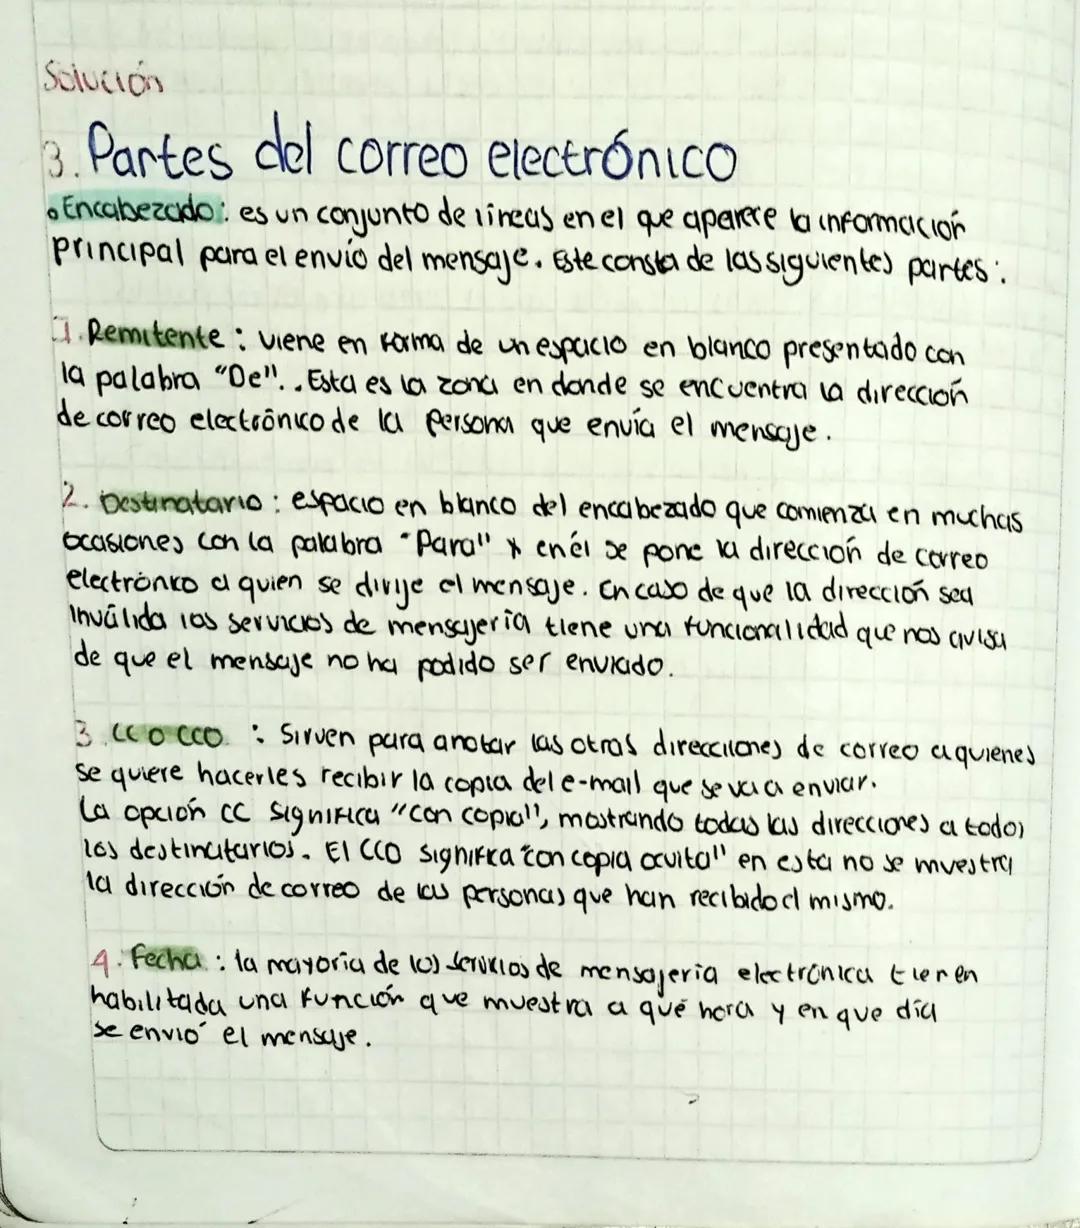 Solución
3. Partes del correo electrónico
• Encabezado: es un conjunto de líneas en el que aparece la información
principal para el envío del mensaje. Este consta de las siguientes partes:
1. Remitente: viene en forma de un espacio en blanco presentado con
la palabra "De". . Esta es la zona en donde se encuentra la dirección
de correo electrónico de la persona que envía el mensaje.
2. Destinatario: espacio en blanco del encabezado que comienza en muchas
ocasiones con la palabra "Para" y en él se pone la dirección de correo
electrónico a quien se dirije el mensaje. En caso de que la dirección sea
inválida los servicios de mensajería tiene una funcionalidad que nos avisa
de que el mensaje no ha podido ser enviado.
3. CC o CCO. : Sirven para anotar las otras direcciones de correo a quienes
se quiere hacerles recibir la copia del e-mail que se va a enviar.
La opción CC significa "con copia", mostrando todas las direcciones a todos
los destinatarios. El CCO significa "con copia oculta" en esta no se muestra
la dirección de correo de las personas que han recibido el mismo.
4. Fecha: la mayoría de los servicios de mensajería electrónica tienen
habilitada una función que muestra a qué hora y en que día
se envió el mensaje.